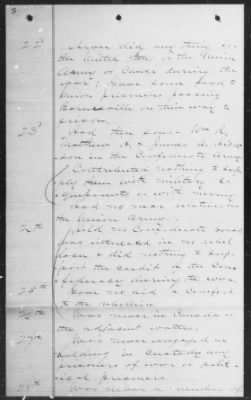 22d Never did any thing for
the United States or the Union
Army or Cause during the
war; Gave some food to
Union prisoners passing
Barnesville on their way to
prison.
23d Had three sons Wm R.
Matthew A. & James A.
son in the Confederate army
Contributed nothing to
them with military
equipments or with money
Had no near relatives in
the Union Army.
24th Held no Confederate bonds
was interested in no
loan & did nothing to sup-
port the credit of the Con-
federacy during the war.
25th Gave no aid & comfort
to the rebellion
26th Was never in Canada or
the adjacent waters.
27th Was never engaged in
holding in custody any
prisoners of war or polit-
ical prisoners.
28th Was never a member of